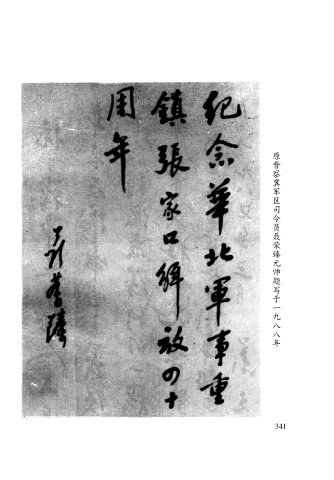 纪念華北軍事重
鎮張家口解放四十
周年
聂荣臻
原晋察冀军区司令员聂荣臻元帅题写于一九八八年
341